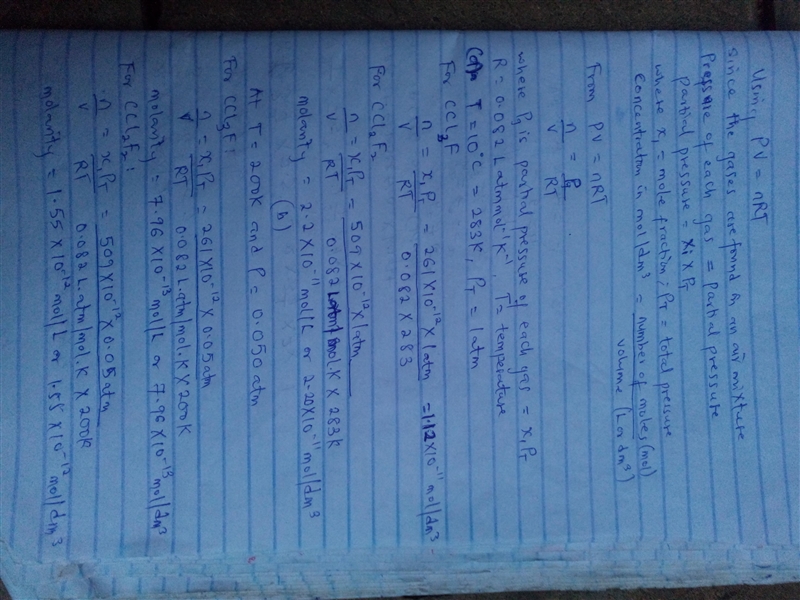 Using PV = nRT
Since the gases are found in an air mixture
Pressure of each gas = partial pressure
partial pressure = xi x PT
where x, = mole fraction; PT = total pressure
Concentration in mol/dm³ = number of moles (mol)
volume (L or dm³)
From PV = nRT
n = Pi
V RT
where Pi is partial pressure of each gas = x,PT
R = 0.082 L atm mol⁻¹ K⁻¹, T = temperature
T = 10°C = 283K, PT = 1atm
For CCl3F
n = x,PT = 261 X 10⁻¹² X 1atm = 1.12 X 10⁻¹¹ mol/dm³
V RT 0.082 X 283
For CCl2F2
n = x,PT = 509 X 10⁻¹² X 1atm
V RT 0.082 L.atm/mol.K X 283K
molarity = 2.2 X 10⁻¹¹ mol/L or 2.20 X 10⁻¹¹ mol/dm³
(b)
At T = 200K and P = 0.050 atm
For CCl3F:
n = x,PT = 261 X 10⁻¹² X 0.05atm
V RT 0.082 L.atm/mol.K X 200K
molarity = 7.96 X 10⁻¹³ mol/L or 7.96 X 10⁻¹³ mol/dm³
For CCl2F2:
n = x,PT = 509 X 10⁻¹² X 0.05atm
V RT 0.082 L.atm/mol.K X 200K
molarity = 1.55 X 10⁻¹² mol/L or 1.55 X 10⁻¹² mol/dm³